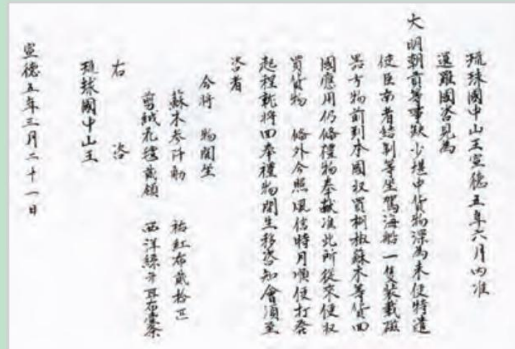 琉球國中山王宣德五年六月內准
暹羅國咨見為
大明朝貢等事缺少堪中貨物深為未便特遣
使臣南者結制等坐駕海船一隻裝載磁
器方物前到本國收買胡椒蘇木等貨回
國應用仍備禮物奉獻准此所從來使收
買貨物 除外今照風信時月順便打發
起程就將回奉禮物開坐移咨知會須至
咨者
今將 物開坐
蘇木叁仟觔 紅布貳拾疋
剪絨花毯貳領 西洋絲手巾
右 咨
琉球國中山王
宣德五年三月二十一日